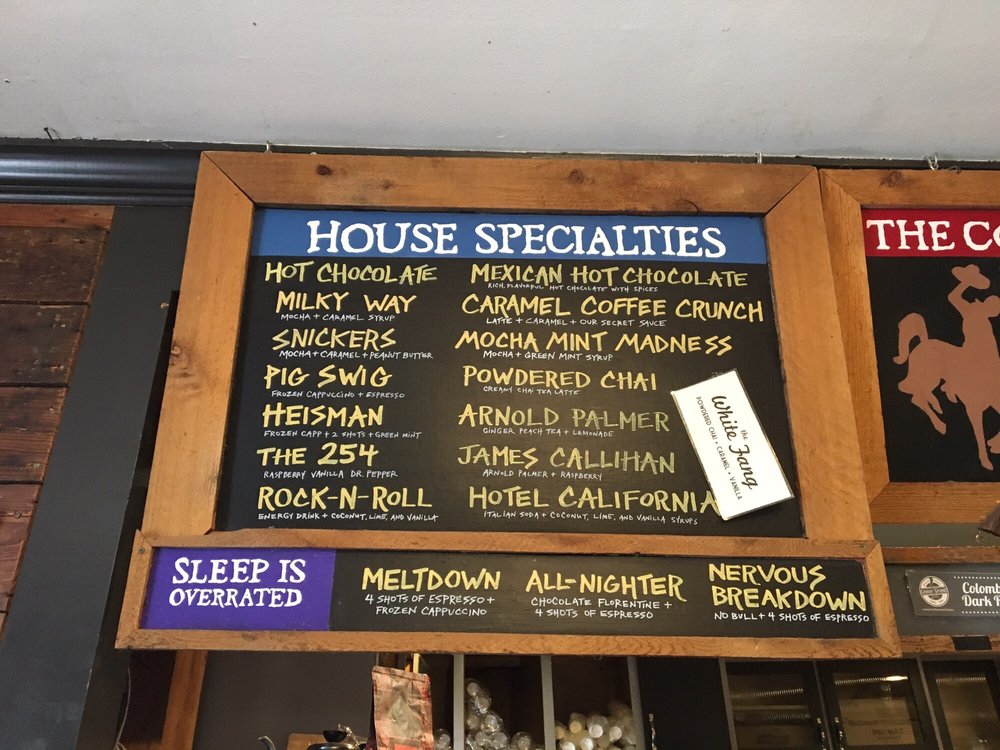 HOUSE SPECIALTIES
HOT CHOCOLATE
MILKY WAY
MOCHA + CARAMEL SYRUP
SNICKERS
MOCHA + CARAMEL + PEANUT BUTTER
PIG SWIG
FROZEN CAPPUCCINO + ESPRESSO
HEISMAN
FROZEN CAPP + 2 SHOTS + GREEN MINT
THE 254
RASPBERRY VANILLA DR. PEPPER
ROCK-N-ROLL
ENERGY DRINK + COCONUT, LIME, AND VANILLA
MEXICAN HOT CHOCOLATE
RICH, FLAVORFUL HOT CHOCOLATE WITH SPICES
CARAMEL COFFEE CRUNCH
LATTE + CARAMEL + OUR SECRET SAUCE
MOCHA MINT MADNESS
MOCHA + GREEN MINT SYRUP
POWDERED CHAI
CREAMY CHAI TEA LATTE
ARNOLD PALMER
GINGER PEACH TEA + LEMONADE
JAMES CALLIHAN
ARNOLD PALMER + RASPBERRY
HOTEL CALIFORNIA
ITALIAN SODA + COCONUT, LIME, AND VANILLA SYRUPS
the
White Fang
POWDERED CHAI + CARAMEL + VANILLA
SLEEP IS
OVERRATED
MELTDOWN
4 SHOTS OF ESPRESSO +
FROZEN CAPPUCCINO
ALL-NIGHTER
CHOCOLATE FLORENTINE +
4 SHOTS OF ESPRESSO
NERVOUS
BREAKDOWN
NO BULL + 4 SHOTS OF ESPRESSO
THE CO
Colomb
Dark R